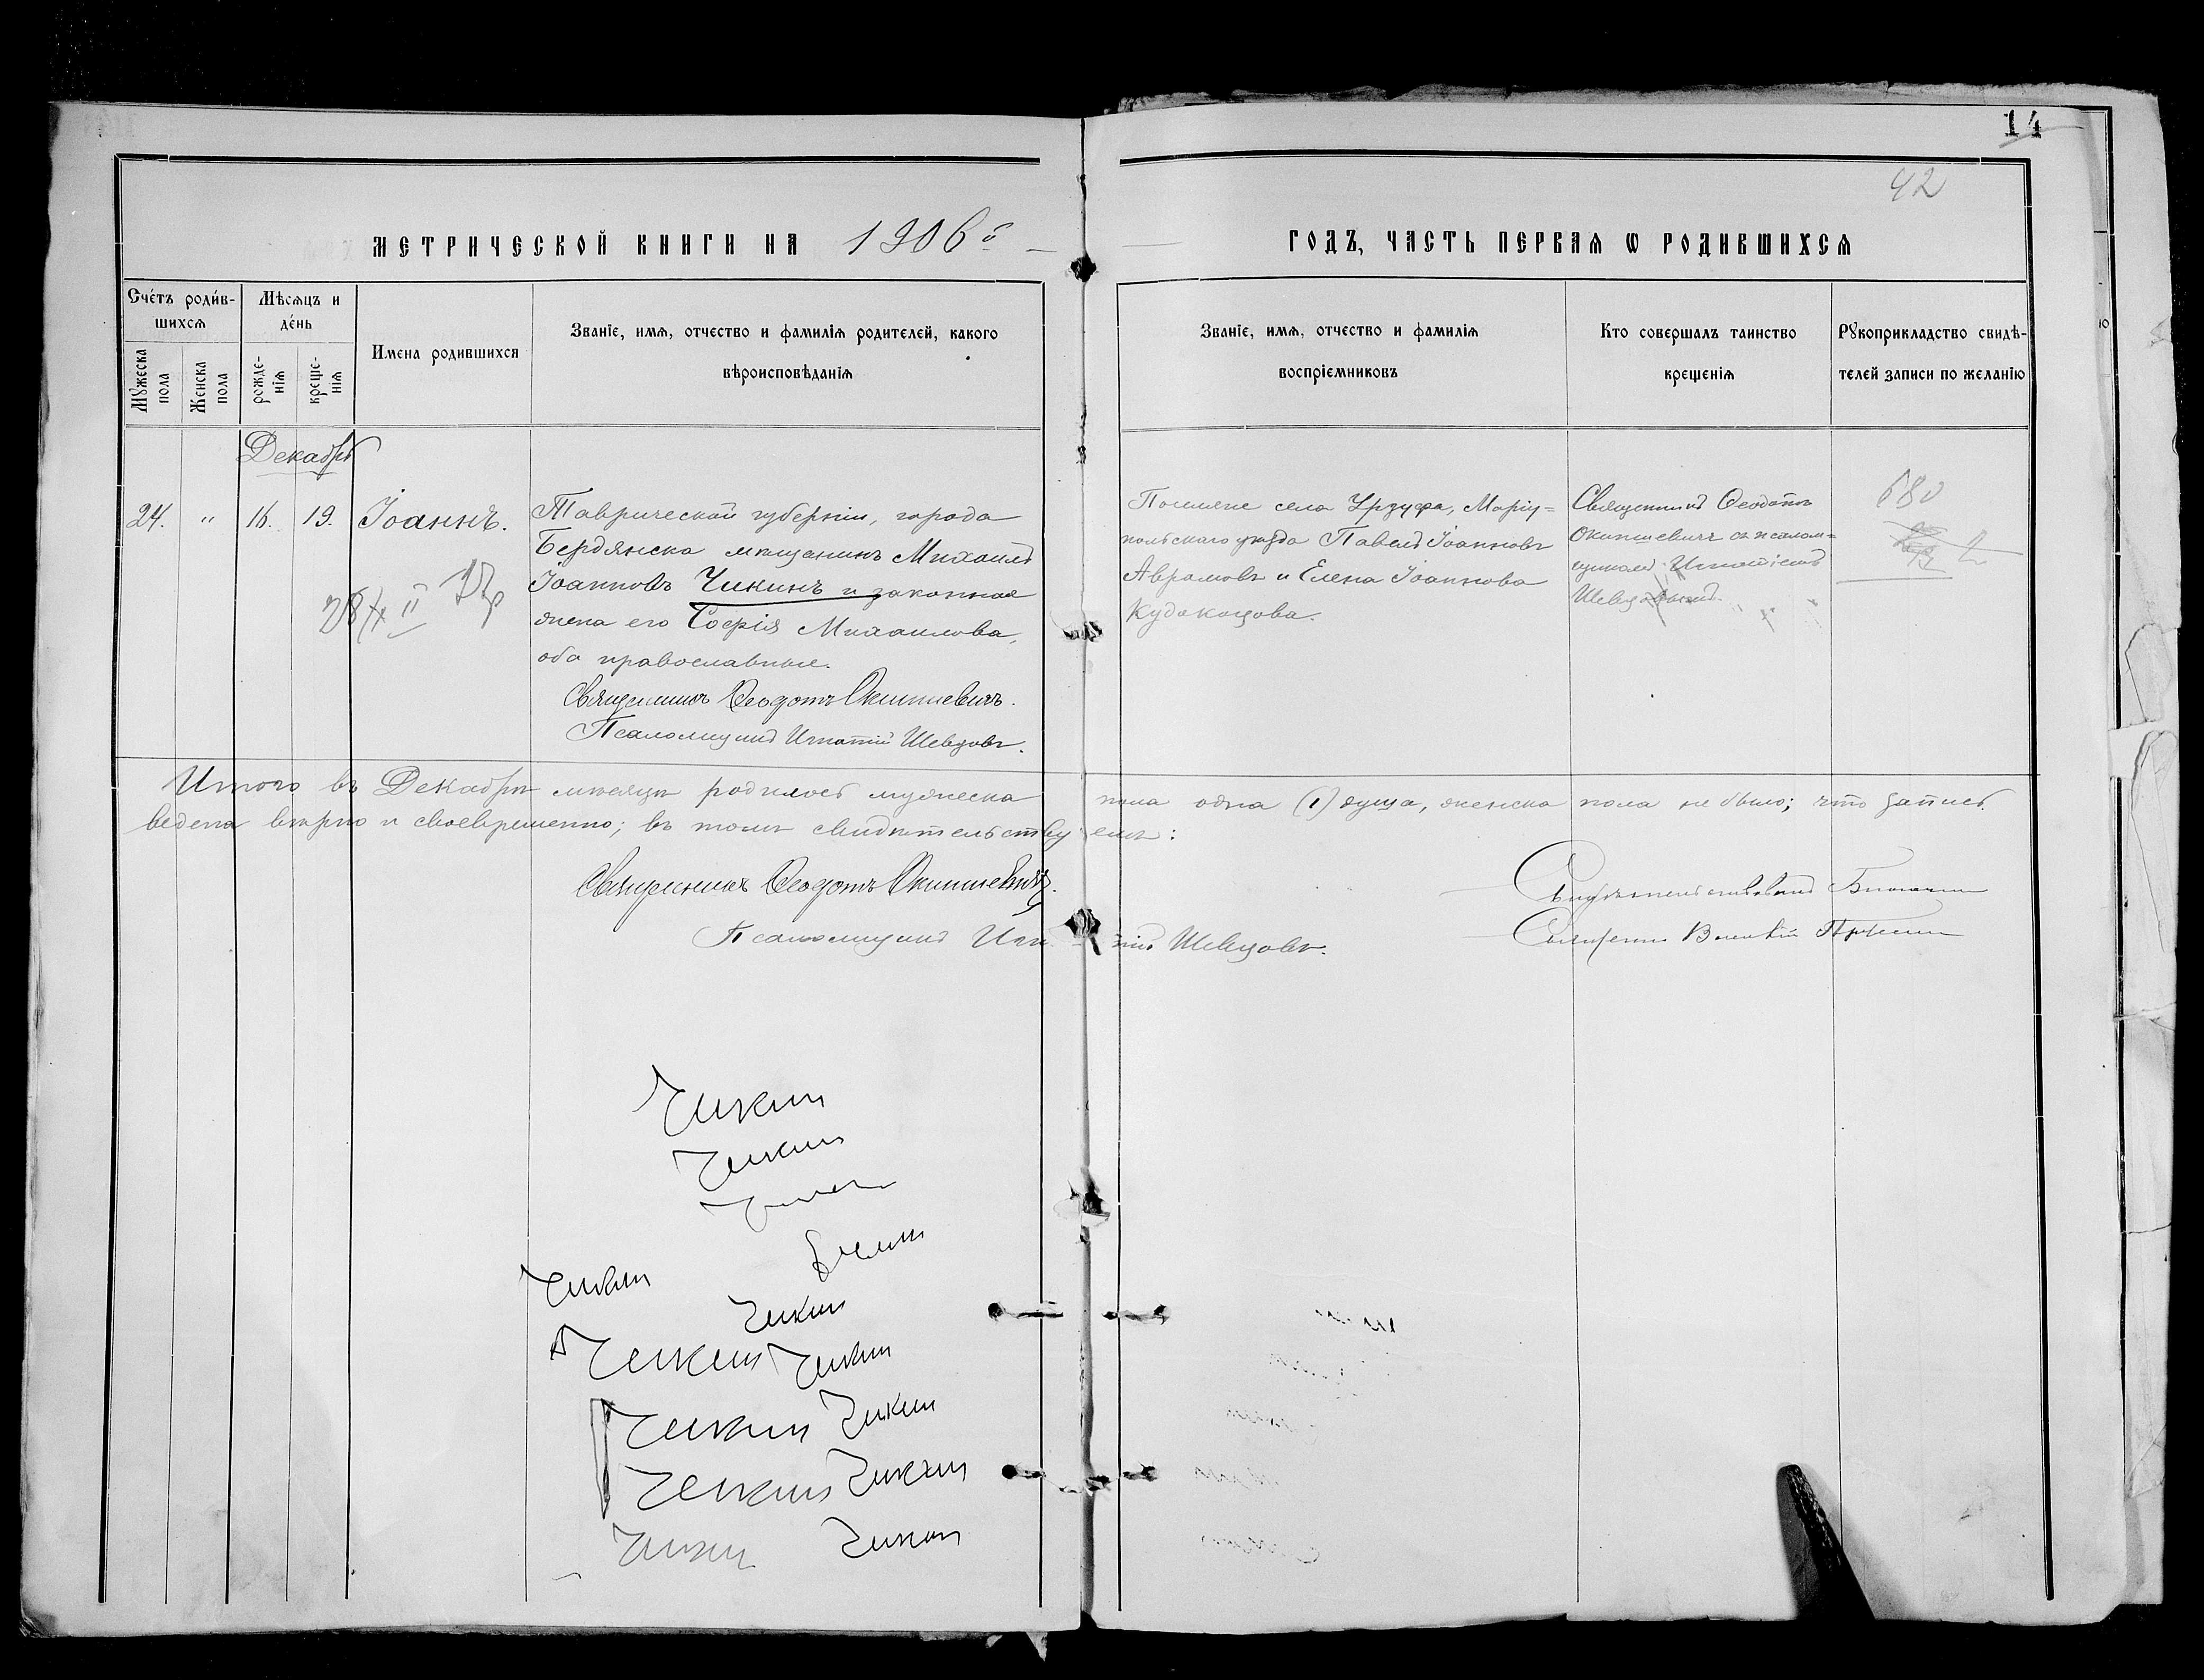 14
42
МЕТРИЧЕСКОЙ КНИГИ НА 1906й
ГОДЪ, ЧАСТЬ ПЕРВАѦ Ѡ РОДИВШИХСѦ
Счéтъ роди́в-
шихсѧ
Мꙋжеска пола
Женска пола
Мѣсѧцъ и
дéнь
рожде-
нїѧ
креще-
нїѧ
Имена родившихсѧ
Званїе, имѧ, отчество и фамилїѧ родителей, какого
вѣроисповѣданїѧ
Званїе, имѧ, отчество и фамилїѧ
воспрїемниковъ
Кто совершалъ таинство
крещенїѧ
Рꙋкоприкладство свидѣ-
телей записи по желанїю
10
Декабрь
24. " 16. 19. Іоаннъ.
Таврической губерніи, города
Бердянска мѣщанинъ Михаилъ
Іоанновъ Чикинъ и законная
жена его Софія Михаилова,
оба православные.
Священникъ Ѳеодотъ Окиншевичъ.
Псаломщикъ Игнатій Шевцовъ.
28/X II
Поселяне села Урзуфа, Маріу=
польскаго уѣзда Павелъ Іоанновъ
Аврамовъ и Елена Іоаннова
Кудакоцова.
Священникъ Ѳеодотъ
Окиншевичъ съ псалом=
щикомъ Игнатіемъ
680
2
Итого въ Декабрѣ мѣсяцѣ родилось мужеска пола одна (1) душа, женска пола не было; что запись
ведена вѣрно и своевременно; въ томъ свидѣтельствуемъ:
Священникъ Ѳеодотъ Окиншевичъ.
Псаломщикъ Игнатій Шевцовъ.
Свидѣтельствовалъ
Священникъ
Чикин
Чикин
Чикин
Чикин
Чикин Чикин
Чикин Чикин
Чикин Чикин
Чикин Чикин